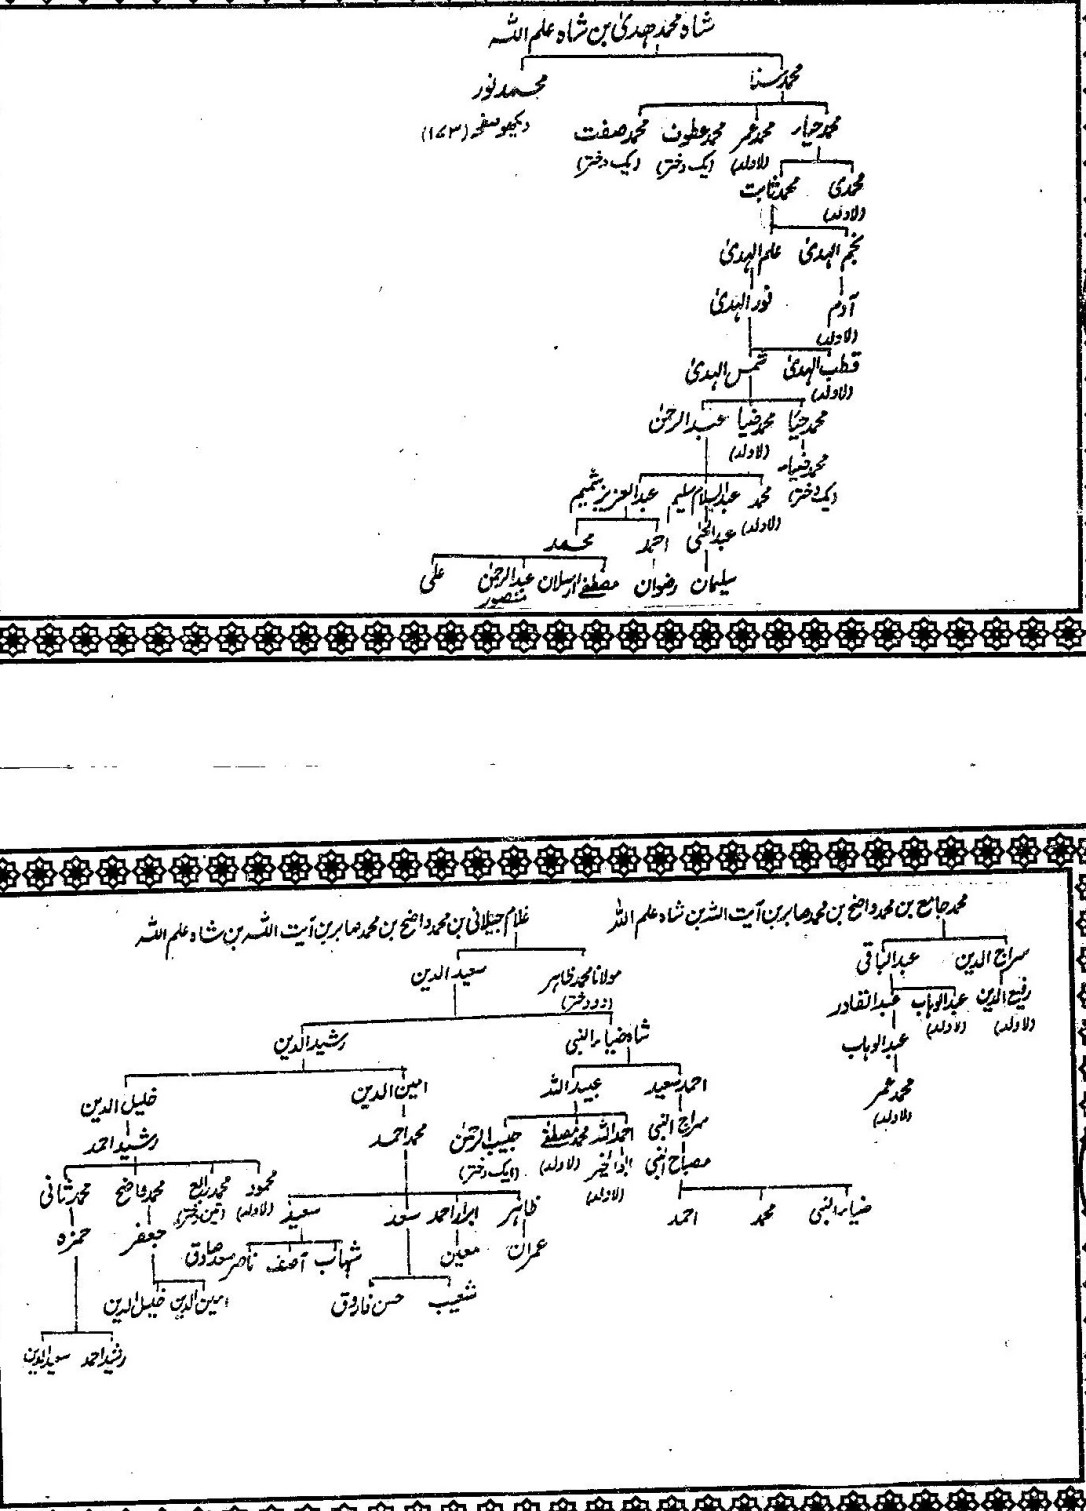 شاہ محمد ھدیٰ بن شاہ علم اللہ
محمد سنا محمد نور
دیکھو صفحہ (۱۷۳)
محمد حیار محمد عمر محمد عطوف محمد صفت
(لاولد) (یک دختر) (یک دختر)
محمدی محمد ثابت
(لاولد)
نجم الہدیٰ علم الہدیٰ
آدم نور الہدیٰ
(لاولد)
قطب الہدیٰ شمس الہدیٰ
(لاولد)
محمد حیّا محمد ضیا عبدالرحمٰن
(لاولد)
محمد ضیاء
(یک دختر)
محمد عبدالسلام سلیم عبدالعزیز شمیم
(لاولد)
عبدالحئی احمد محمد
سلیمان رضوان مصطفےٰ ارسلان عبدالرحمٰن علی
منصور
محمد جامع بن محمد واضح بن محمد صابر بن آیت اللہ بن شاہ علم اللہ
سراج الدین عبدالباقی
رفیع الدین عبدالوہاب عبدالقادر
(لاولد) (لاولد)
عبدالوہاب
محمد عمر
(لاولد)
غلام جیلانی بن محمد واضح بن محمد صابر بن آیت اللہ بن شاہ علم اللہ
مولانا محمد ظاہر سعید الدین
(دو دختر)
شاہ ضیاء النبی رشید الدین
احمد سعید عبید اللہ امین الدین خلیل الدین
سراج النبی احمد اللہ محمد مصطفےٰ حبیب الرحمٰن محمد احمد رشید احمد
(لاولد) (ایک دختر)
مصباح النبی ابوالخیر
(لاولد)
محمود محمد رابع محمد واضح محمد ثانی
(لاولد) (تین دختر)
ضیاء النبی محمد احمد
ظاہر ابرار احمد سعد سعید
جعفر حمزہ
عمران معین شہاب آصف ناصر سعد صادق
شعیب حسن فاروق امین الدین خلیل الدین
رشید احمد سعید الدین